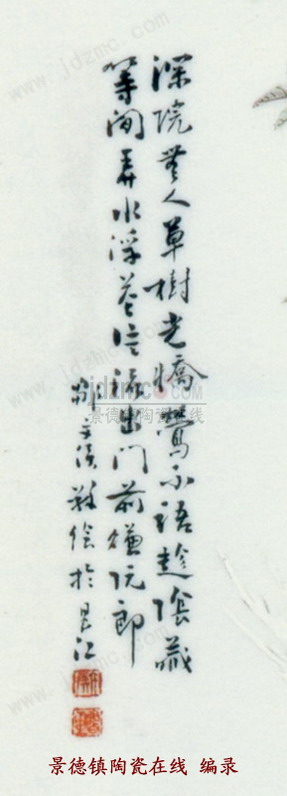 深院無人草樹光嬌鶯不語趁陰藏
等闲弄水浮花片流出門前賺阮郎
鄧文溪敬绘於昌江
www.jdzmc.com
景德镇陶瓷在线
景德镇陶瓷在线 编录